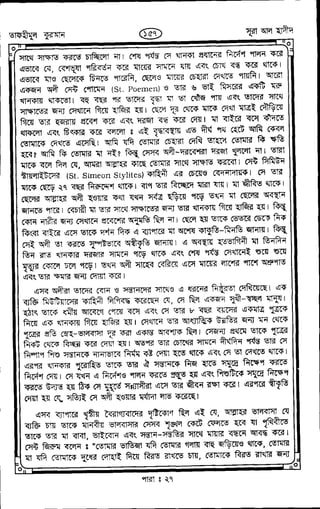 তাফহীমুল কুরআন
১৫৭
সূরা আল হাদীদ
সাথে সাক্ষাত করতে চাচ্ছিলো না। শেষ পর্যন্ত সে খানকা প্রধানের নির্দেশ পালন করে
এভাবে যে, বেশভূষা পরিবর্তন করে মায়ের সামনে যায় এবং চোখ বন্ধ করে থাকে।
এভাবে মাও ছেলেকে চিনতে পারেনি, ছেলেও মায়ের চেহারা দেখতে পায়নি। আরো
একজন অলী সেন্ট পোমেন (St. Poemen) ও তার ৬ ভাই মিসরের একটি মরু
খানকায় থাকতো। বহু বছর পর তাদের বৃদ্ধা মা তা জানতে পায় এবং তাদের সাথে
সাক্ষাতের জন্য সেখানে গিয়ে হাজির হয়। ছেলে দূর থেকে মাকে দেখা মাত্রই দৌড়িয়ে
গিয়ে তার হুজরায় প্রবেশ করে এবং দরজা বন্ধ করে দেয়। মা বাইরে বসে কাঁদতে
থাকলো এবং চিৎকার করে বললো : এই বৃদ্ধাবস্থায় এত দীর্ঘ পথ হেঁটে আমি কেবল
তোমাদের দেখতে এসেছি। আমি যদি তোমাদের চেহারা দেখি তাহলে তোমাদের কি ক্ষতি
হবে? আমি কি তোমাদের মা নই? কিন্তু সেসব অলী-দরবেশরা দরজা খুললো না। তারা
মাকে বলে দিল যে, আমরা আল্লাহর কাছে তোমার সাথে সাক্ষাত করবো। সেন্ট সিমিয়ন
স্টায়লাইটসের (St. Simeon Stylites) কাহিনী এর চেয়েও বেদনাদায়ক। সে তার
মাকে ছেড়ে ২৭ বছর নিরুদ্দেশ থাকে। বাপ তার বিচ্ছেদে মারা যায়। মা জীবিত থাকে।
ছেলের আল্লাহর অলী হওয়ার কথা যখন সর্বত্র ছড়িয়ে পড়ে তখন মা ছেলের অবস্থান
জানতে পারে। বেচারী মা তার সাথে সাক্ষাতের জন্য তার খানকায় গিয়ে হাজির হয়। কিন্তু
কোন নারীর জন্য সেখানে প্রবেশের অনুমতি ছিল না। ছেলে হয় তাকে ভেতরে ডেকে নিক
কিংবা বাইরে এসে তাকে দর্শন দিক এ ব্যাপারে মা অশেষ কাকুতি-মিনতি জানায়। কিন্তু
সেই অলী তা করতে সুস্পষ্টভাবে অস্বীকৃতি জানায়। এ অবস্থায় হতভাগিনী মা তিনদিন
তিন রাত খানকার দরজার সামনে পড়ে থাকে এবং শেষ পর্যন্ত সেখানেই শুয়ে শুয়ে
মৃত্যুর কোলে ঢলে পড়ে। তখন অলী সাহেব বেরিয়ে এসে মায়ের লাশের পাশে অশ্রুপাত
এবং তার ক্ষমার জন্য দোয়া করে।
এসব অলীরা তাদের বোন ও সন্তানদের সাথেও এ ধরনের নিষ্ঠুরতা দেখিয়েছে। এক
ব্যক্তি মিউটিয়াসের কাহিনী লিপিবদ্ধ করেছেন যে, সে ছিল একজন সুখী-স্বচ্ছল মানুষ।
হঠাৎ তাকে ধর্মীয় আবেগে পেয়ে বসে এবং সে তার ৮ বছর বয়সের একমাত্র পুত্রকে
নিয়ে এক খানকায় গিয়ে হাজির হয়। সেখানে তার আধ্যাত্মিক উন্নতির জন্য মন থেকে
পুত্রের প্রতি স্নেহ-ভালবাসা দূর করা একান্ত আবশ্যক ছিল। সেজন্য প্রথমে তাকে পুত্রের
নিকট থেকে বিচ্ছিন্ন করে দেয়া হয়। অতপর তার চোখের সামনে দীর্ঘদিন পর্যন্ত তার সে
নিষ্পাপ শিশু সন্তানকে নানাভাবে নির্মম কষ্ট দেয়া হতে থাকে এবং সে তা দেখতে থাকে।
এরপর খানকার পুরোহিত তাকে তার ঐ সন্তানকে নিজ হাতে সমুদ্রে নিক্ষেপ করার
নির্দেশ দেয়। সে যখন এ নির্দেশও পালন করতে প্রস্তুত হয় এবং শিশুটিকে সমুদ্রে নিক্ষেপ
করতে উদ্যত হয় ঠিক সে মুহূর্তে সন্ন্যাসীরা এসে তার জীবন রক্ষা করে। এরপরে স্বীকৃতি
দেয়া হয় যে, সত্যিই সে অলী হওয়ার মর্যাদা লাভ করেছে।
এসব ব্যাপারে খৃষ্টীয় বৈরাগ্যবাদের দৃষ্টিকোণ ছিল এই যে, আল্লাহর ভালবাসা যে
ব্যক্তি চায় তাকে মানবীয় ভালবাসার সেসব শৃঙ্খল কেটে ফেলতে হবে যা পৃথিবীতে
তাকে তার মা বাবা, ভাইবোন এবং সন্তান-সন্ততির সাথে মায়ার বাঁধনে আবদ্ধ করে।
সেন্ট জিরুম বলেন : "তোমার ভাতিজা যদি তোমার গলায় বাহু জড়িয়েও থাকে, তোমার
মা যদি তোমাকে দুধের দোহাই দিয়ে বিরত রাখতে চায়, তোমাকে বিরত রাখার জন্য
পারা : ২৭